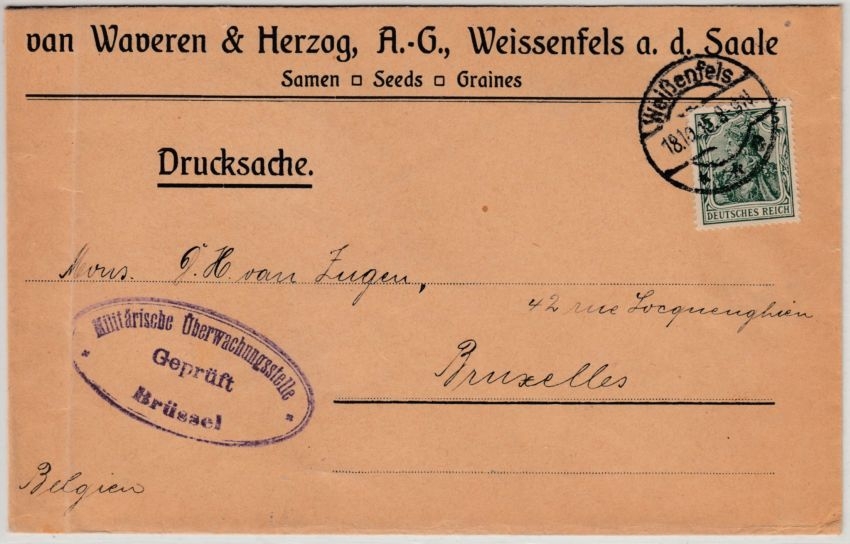 van Waveren & Herzog, A.-G., Weissenfels a. d. Saale
Samen □ Seeds □ Graines
Weißenfels
18.10.15. 8-9N
DEUTSCHES REICH
Drucksache.
Mons. D. H. van Zugen,
42 rue Locquenghien
Bruxelles
Militärische Überwachungsstelle
Geprüft
Brüssel
Belgien